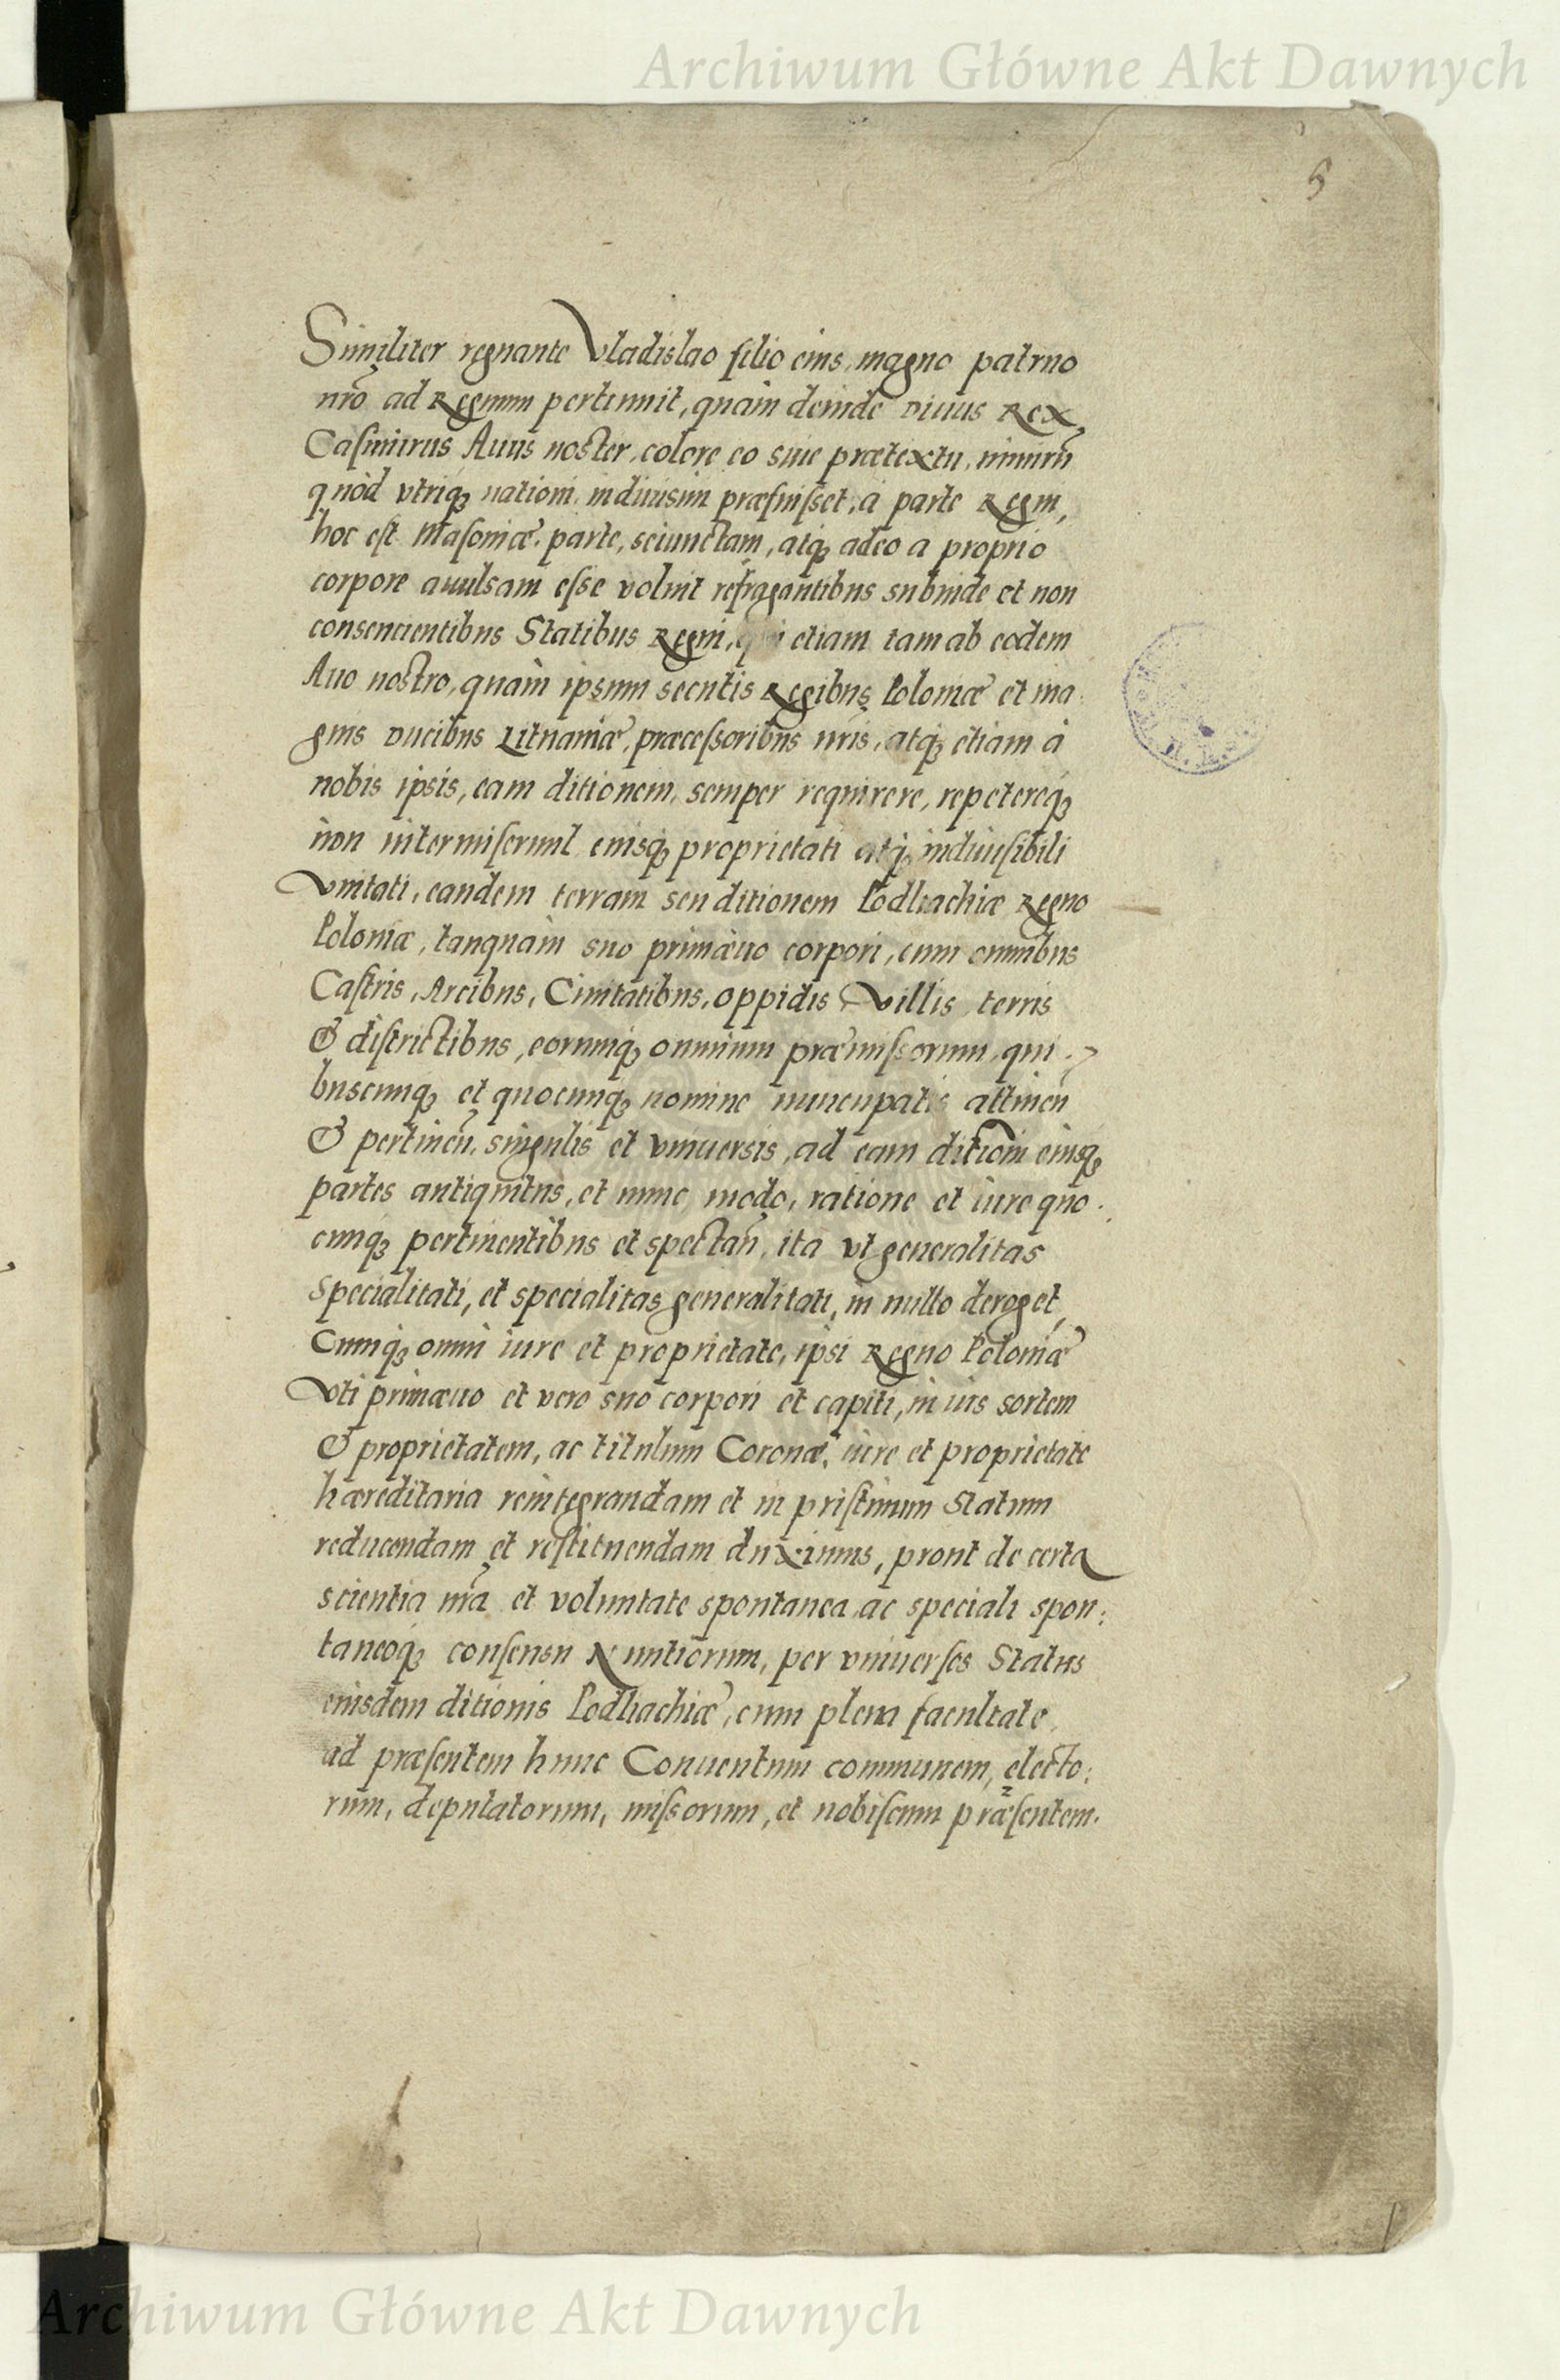 Archiwum Główne Akt Dawnych
5
Similiter regnante Vladislao filio eius, magno patruo
nr̃o ad Regnum pertinuit, quàm deinde Diuus Rex
Casimirus Auus noster, colore eo siue prætextu, nimirũ
quòd vtriqȝ nationi indiuisim præfuisset, à parte Regni,
hoc est Masoviæ parte, seiunctam, atqȝ adeo a proprio
corpore auulsam esse voluit refragantibus subinde et non
consencientibus Statibus Regni, qui etiam tam ab eodem
Auo nostro, quàm ipsum secutis Regibus Poloniæ et ma
gnis Ducibus Lituaniæ, præcessoribus nr̃is, atqȝ etiam à
nobis ipsis, eam ditionem, semper requirere, repetereqȝ
non intermiserunt eiusqȝ proprietati atqȝ indiuisibili
Vnitati, eandem terram seu ditionem Podlachiæ Regno
Poloniæ, tanquàm suo primæuo corpori, cum omnibus
Castris, Arcibus, Ciuitatibus, Oppidis Villis, terris
& districtibus, eorumqȝ omnium præmissorum, qui
buscunqȝ et quocunqȝ nomine nuncupatis attineñ
& pertineñ, singulis et vniuersis, ad eam ditionẽ eiusqȝ
partes antiquitus, et nunc, modo, ratione et iure quo
cunqȝ pertinentibus et spectañ, ita vt generalitas
specialitati, et specialitas generalitati, in nullo deroget,
Cumqȝ omni iure et proprietate, ipsi Regno Poloniæ
Vti primæuo et vero suo corpori et capiti, in ius sortem
& proprietatem, ac titulum Coronæ, iure et proprietate
hæreditaria reintegrandam et in pristinum Statum
reducendam et restituendam duximus, prout de certa
scientia nr̃a et voluntate spontanea, ac speciali spon:
taneoqȝ consensu Nuntiorum, per vniuersos Status
eiusdem ditionis Podlachiæ, cum plena facultate,
ad præsentem hunc Conuentum communem, electo:
rum, deputatorum, missorum, et nobiscum præsentem.
Archiwum Główne Akt Dawnych